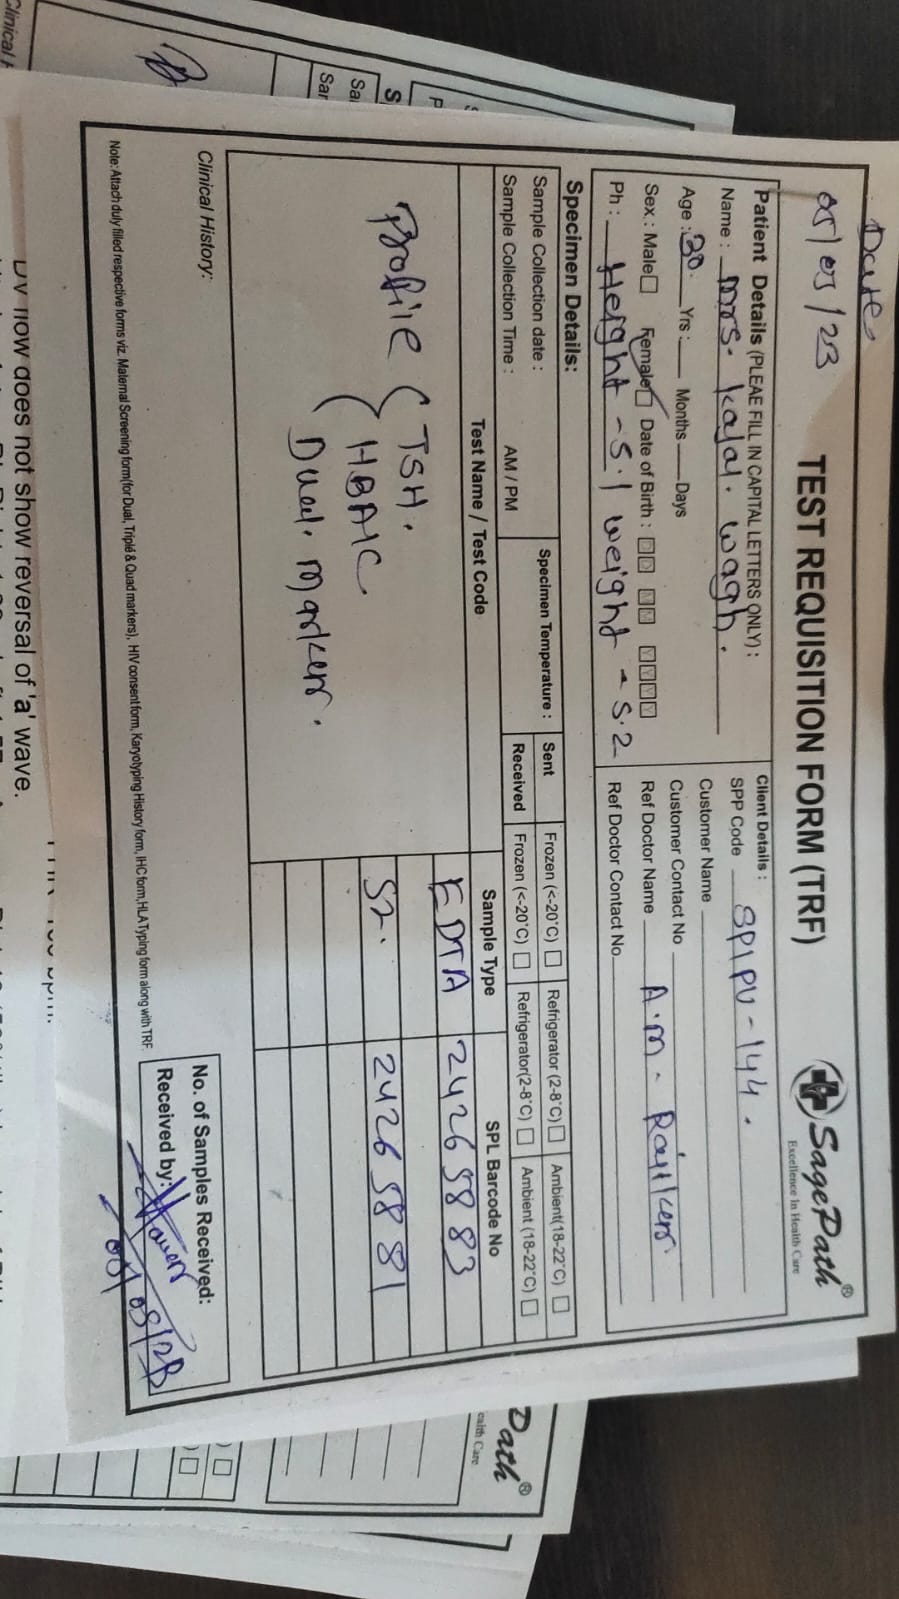 Date
05/05/23
TEST REQUISITION FORM (TRF)
SagePath®
Excellence In Health Care
Patient Details (PLEAE FILL IN CAPITAL LETTERS ONLY) :
Name : Mrs. Kajal. Wagh.
Age : 30 Yrs : Months Days
Sex : Male Female Date of Birth : D D M M Y Y Y Y
Ph : Height - 5.1 weight - 52
Client Details :
SPP Code SPIPU - 144.
Customer Name
Customer Contact No
Ref Doctor Name A.M.
Ref Doctor Contact No
Specimen Details:
Sample Collection date :
Sample Collection Time : AM / PM
Specimen Temperature :
Sent Frozen (<-20°C) Refrigerator (2-8°C) Ambient(18-22°C)
Received Frozen (<-20°C) Refrigerator(2-8°C) Ambient (18-22°C)
Test Name / Test Code
Sample Type
SPL Barcode No
Profile ( TSH.
( HBA1C.
Dual. Markers.
EDTA 24265883
Sr. 24265881
Clinical History:
No. of Samples Received:
Received by:
05/05/23
Note: Attach duly filled respective forms viz. Maternal Screening form(for Dual, Triple & Quad markers), HIV consent form, Karyotyping History form, IHC form,HLA Typing form along with TRF
DV flow does not show reversal of 'a' wave.
Path®
ealth Care
Clinical H